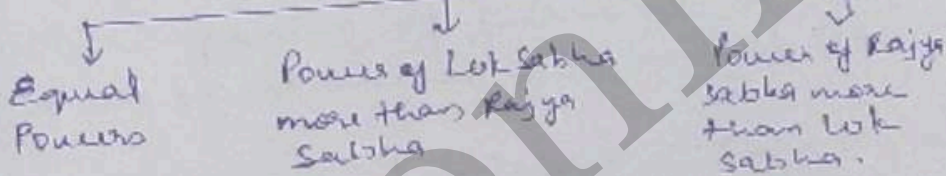 Equal
Powers
Power of Lok Sabha
more than Rajya
Sabha
Power of Rajya
sabha more
than Lok
Sabha.